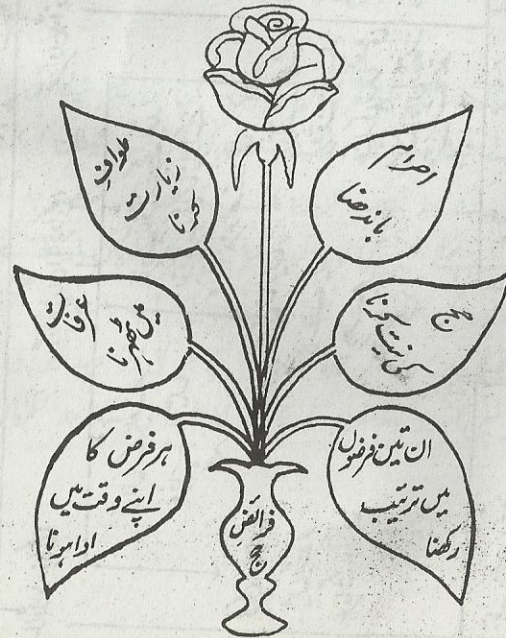 احرام
باندھنا
طوافِ
زیارت
کرنا
حج
کی نیت کرنا
عرفات
میں ٹھہرنا
ان تین فرضوں
میں ترتیب
رکھنا
ہر فرض کا
اپنے وقت میں
ادا ہونا
فرائضِ
حج